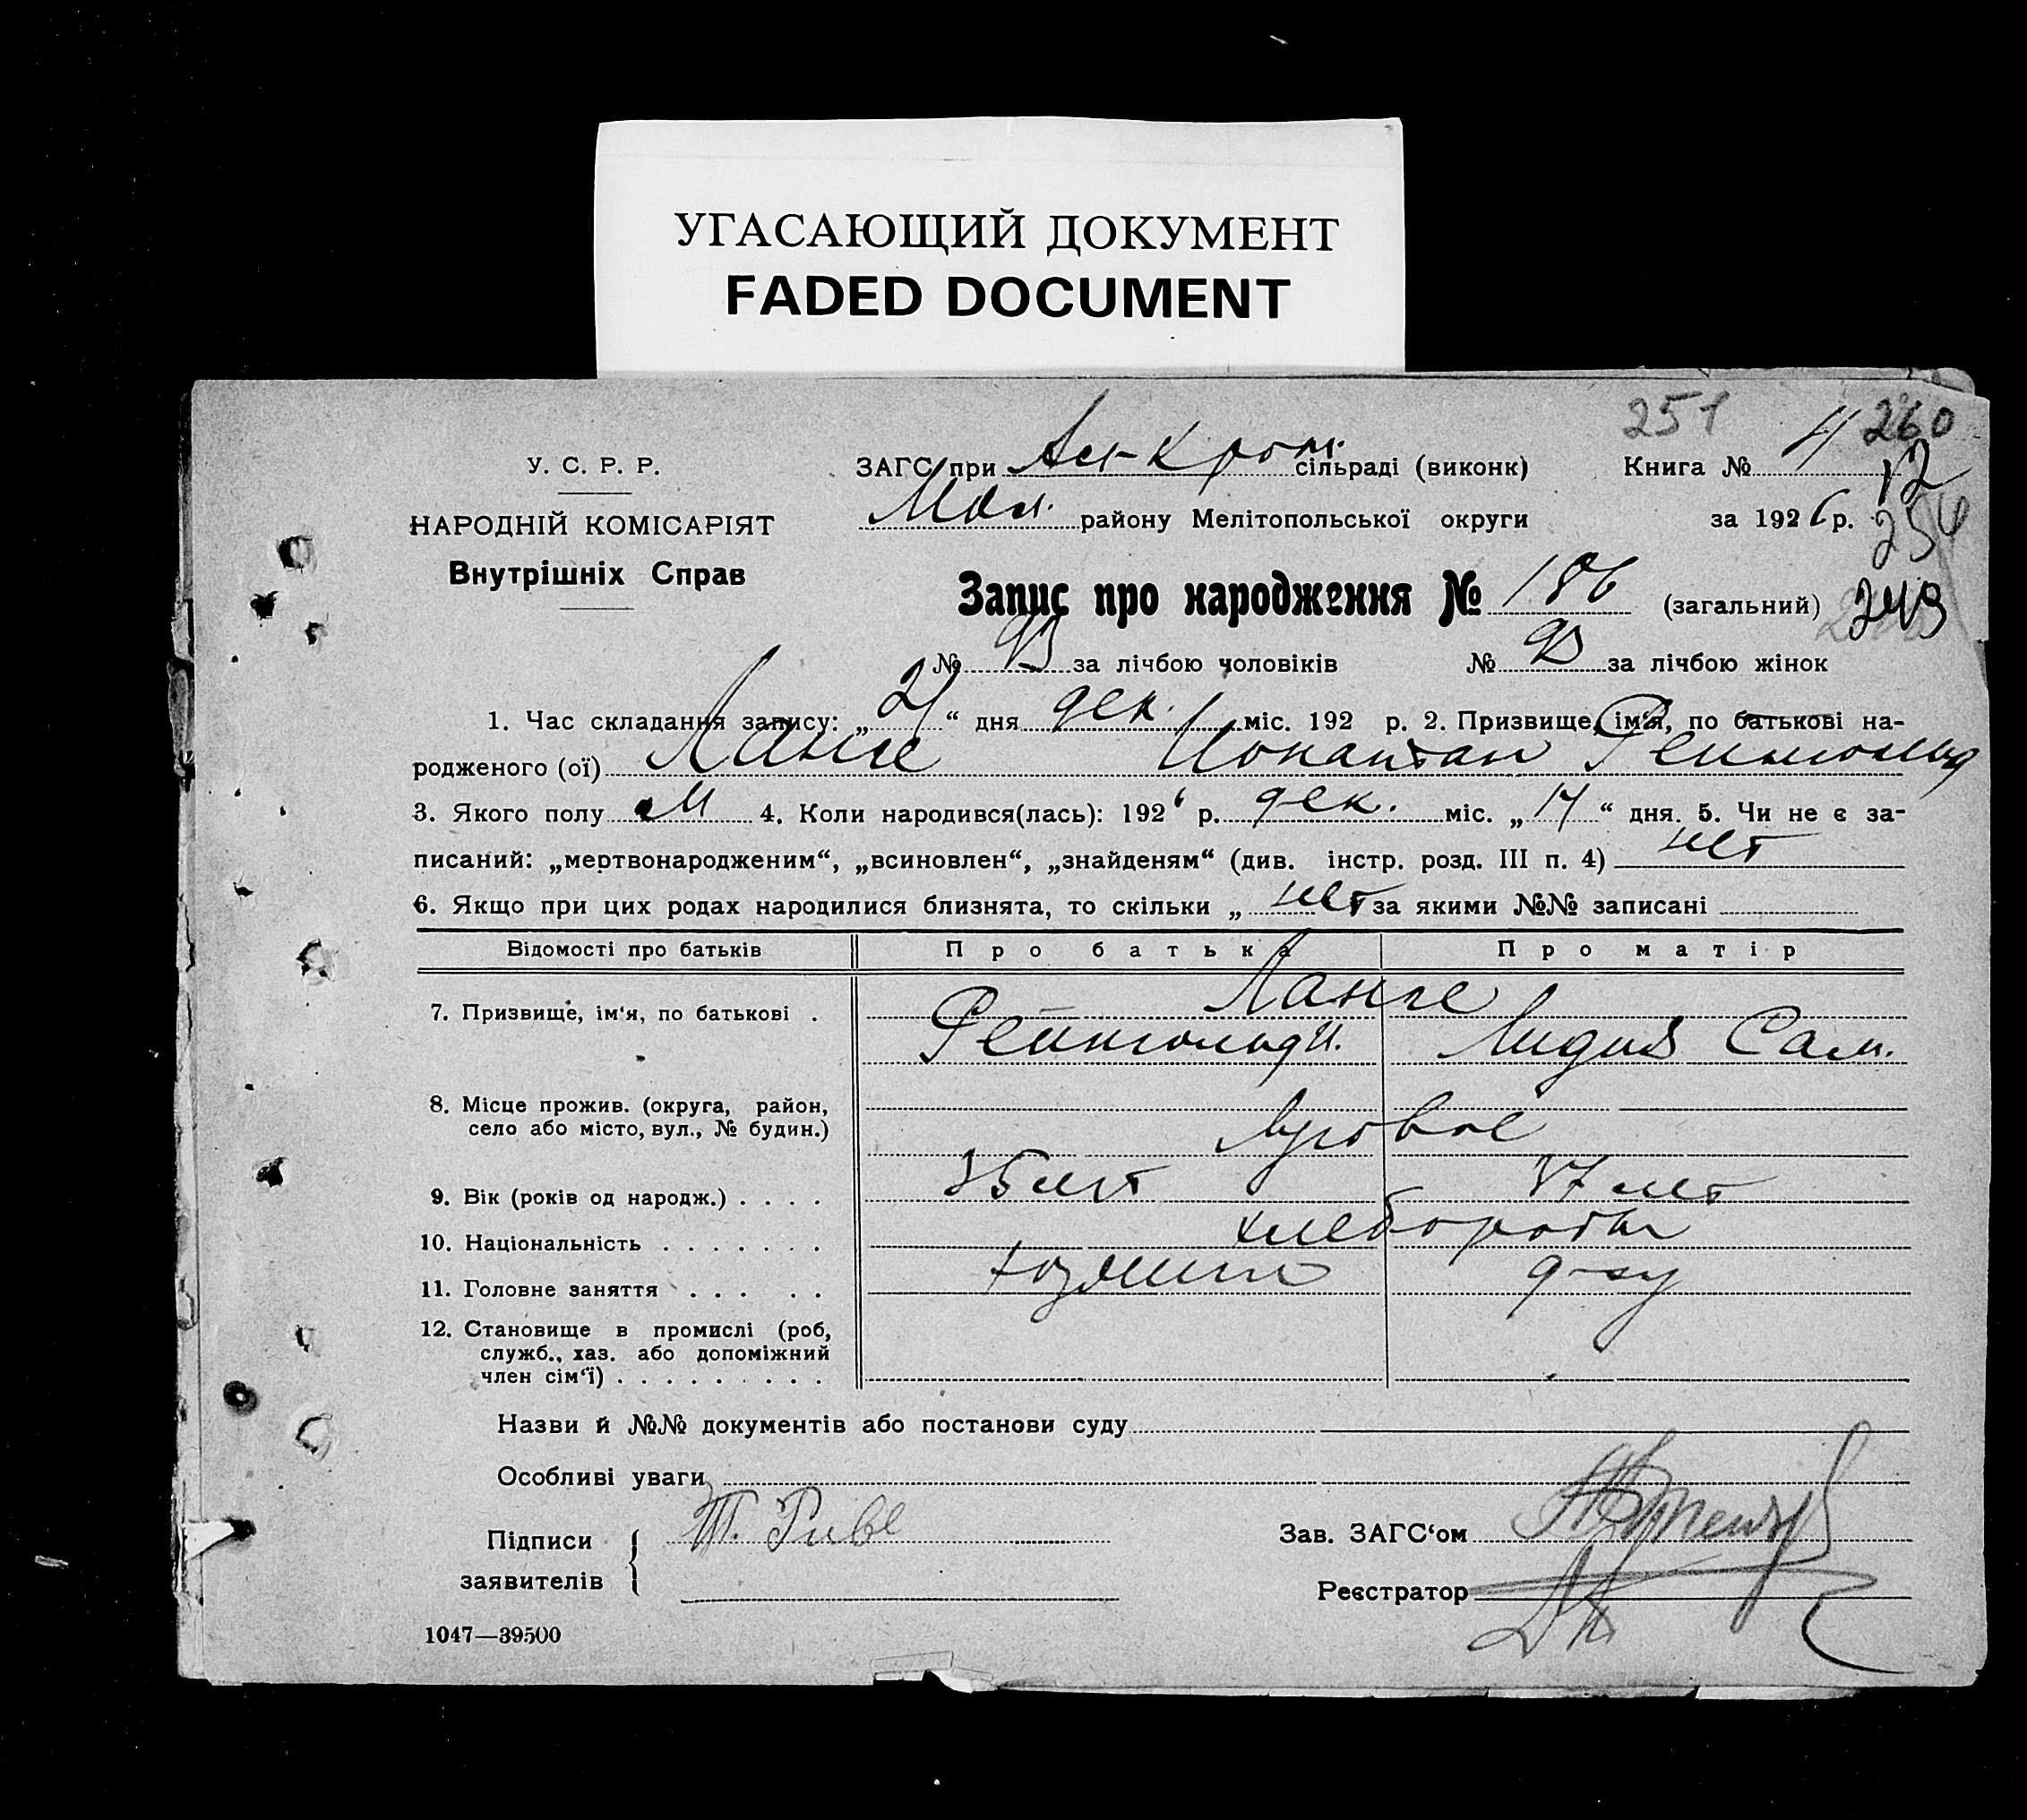 УГАСАЮЩИЙ ДОКУМЕНТ
FADED DOCUMENT
251 260
У. С. Р. Р.
ЗАГС при сільраді (виконк) Книга №
12
НАРОДНІЙ КОМІСАРІЯТ
Мол. району Мелітопольської округи за 1926 р.
254
Внутрішніх Справ
Запис про народження № 186 (загальний)
№ 93 за лічбою чоловіків № 93 за лічбою жінок
1. Час складання запису: „21“ дня дек. міс. 192 р. 2. Призвище, ім‘я, по батькові на-
родженого (ої) Ланге Ионатан Рейнгольд
3. Якого полу м 4. Коли народився(лась): 1926 р. дек. міс. „17“ дня. 5. Чи не є за-
писаний: „мертвонародженим“, „всиновлен“, „знайденям“ (див. інстр. розд. III п. 4) нет
6. Якщо при цих родах народилися близнята, то скільки „ нет за якими №№ записані
Відомості про батьків Про батька Про матір
Ланге
7. Призвище, ім‘я, по батькові .
Рейнгольд И. Лидия Сам.
8. Місце прожив. (округа, район,
село або місто, вул., № будин.)
Луговое
9. Вік (років од народж.) . . . . 35 лет 37 лет
хлеборобы
10. Національність . . . . . . .
11. Головне заняття . . . . .
12. Становище в промислі (роб,
служб., хаз. або допоміжний
член сім‘ї) . . . . . . . . .
Назви й №№ документів або постанови суду
Особливі уваги
Підписи
заявителів
Зав. ЗАГС‘ом
Реєстратор
1047—39500